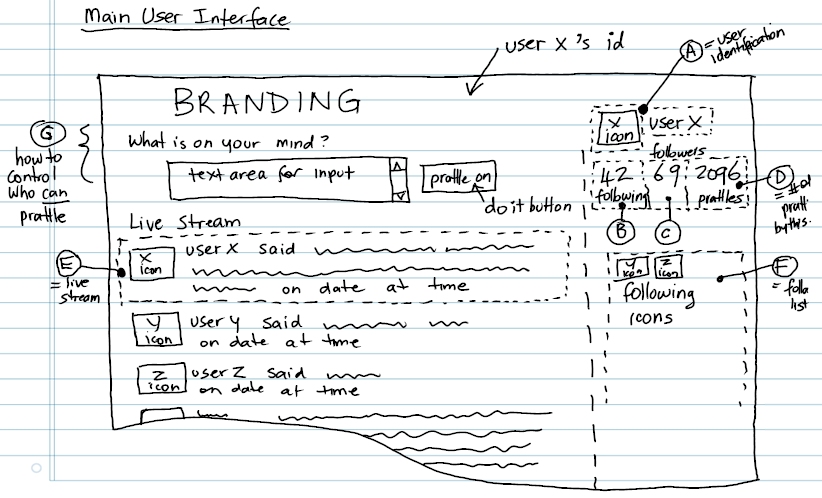 Main User Interface
user X's id
A = user identification
BRANDING
What is on your mind?
text area for input
prattle on
do it button
G
how to
control
who can
prattle
X
icon
user X
followers
42
69
2096
following
prattles
B
C
D
= # of
by this
Live Stream
E
= live
stream
X
icon
user X said
on date at time
Y
icon
user Y said
on date at time
Z
icon
user Z said
on date at time
Y
icon
Z
icon
following
icons
F
list